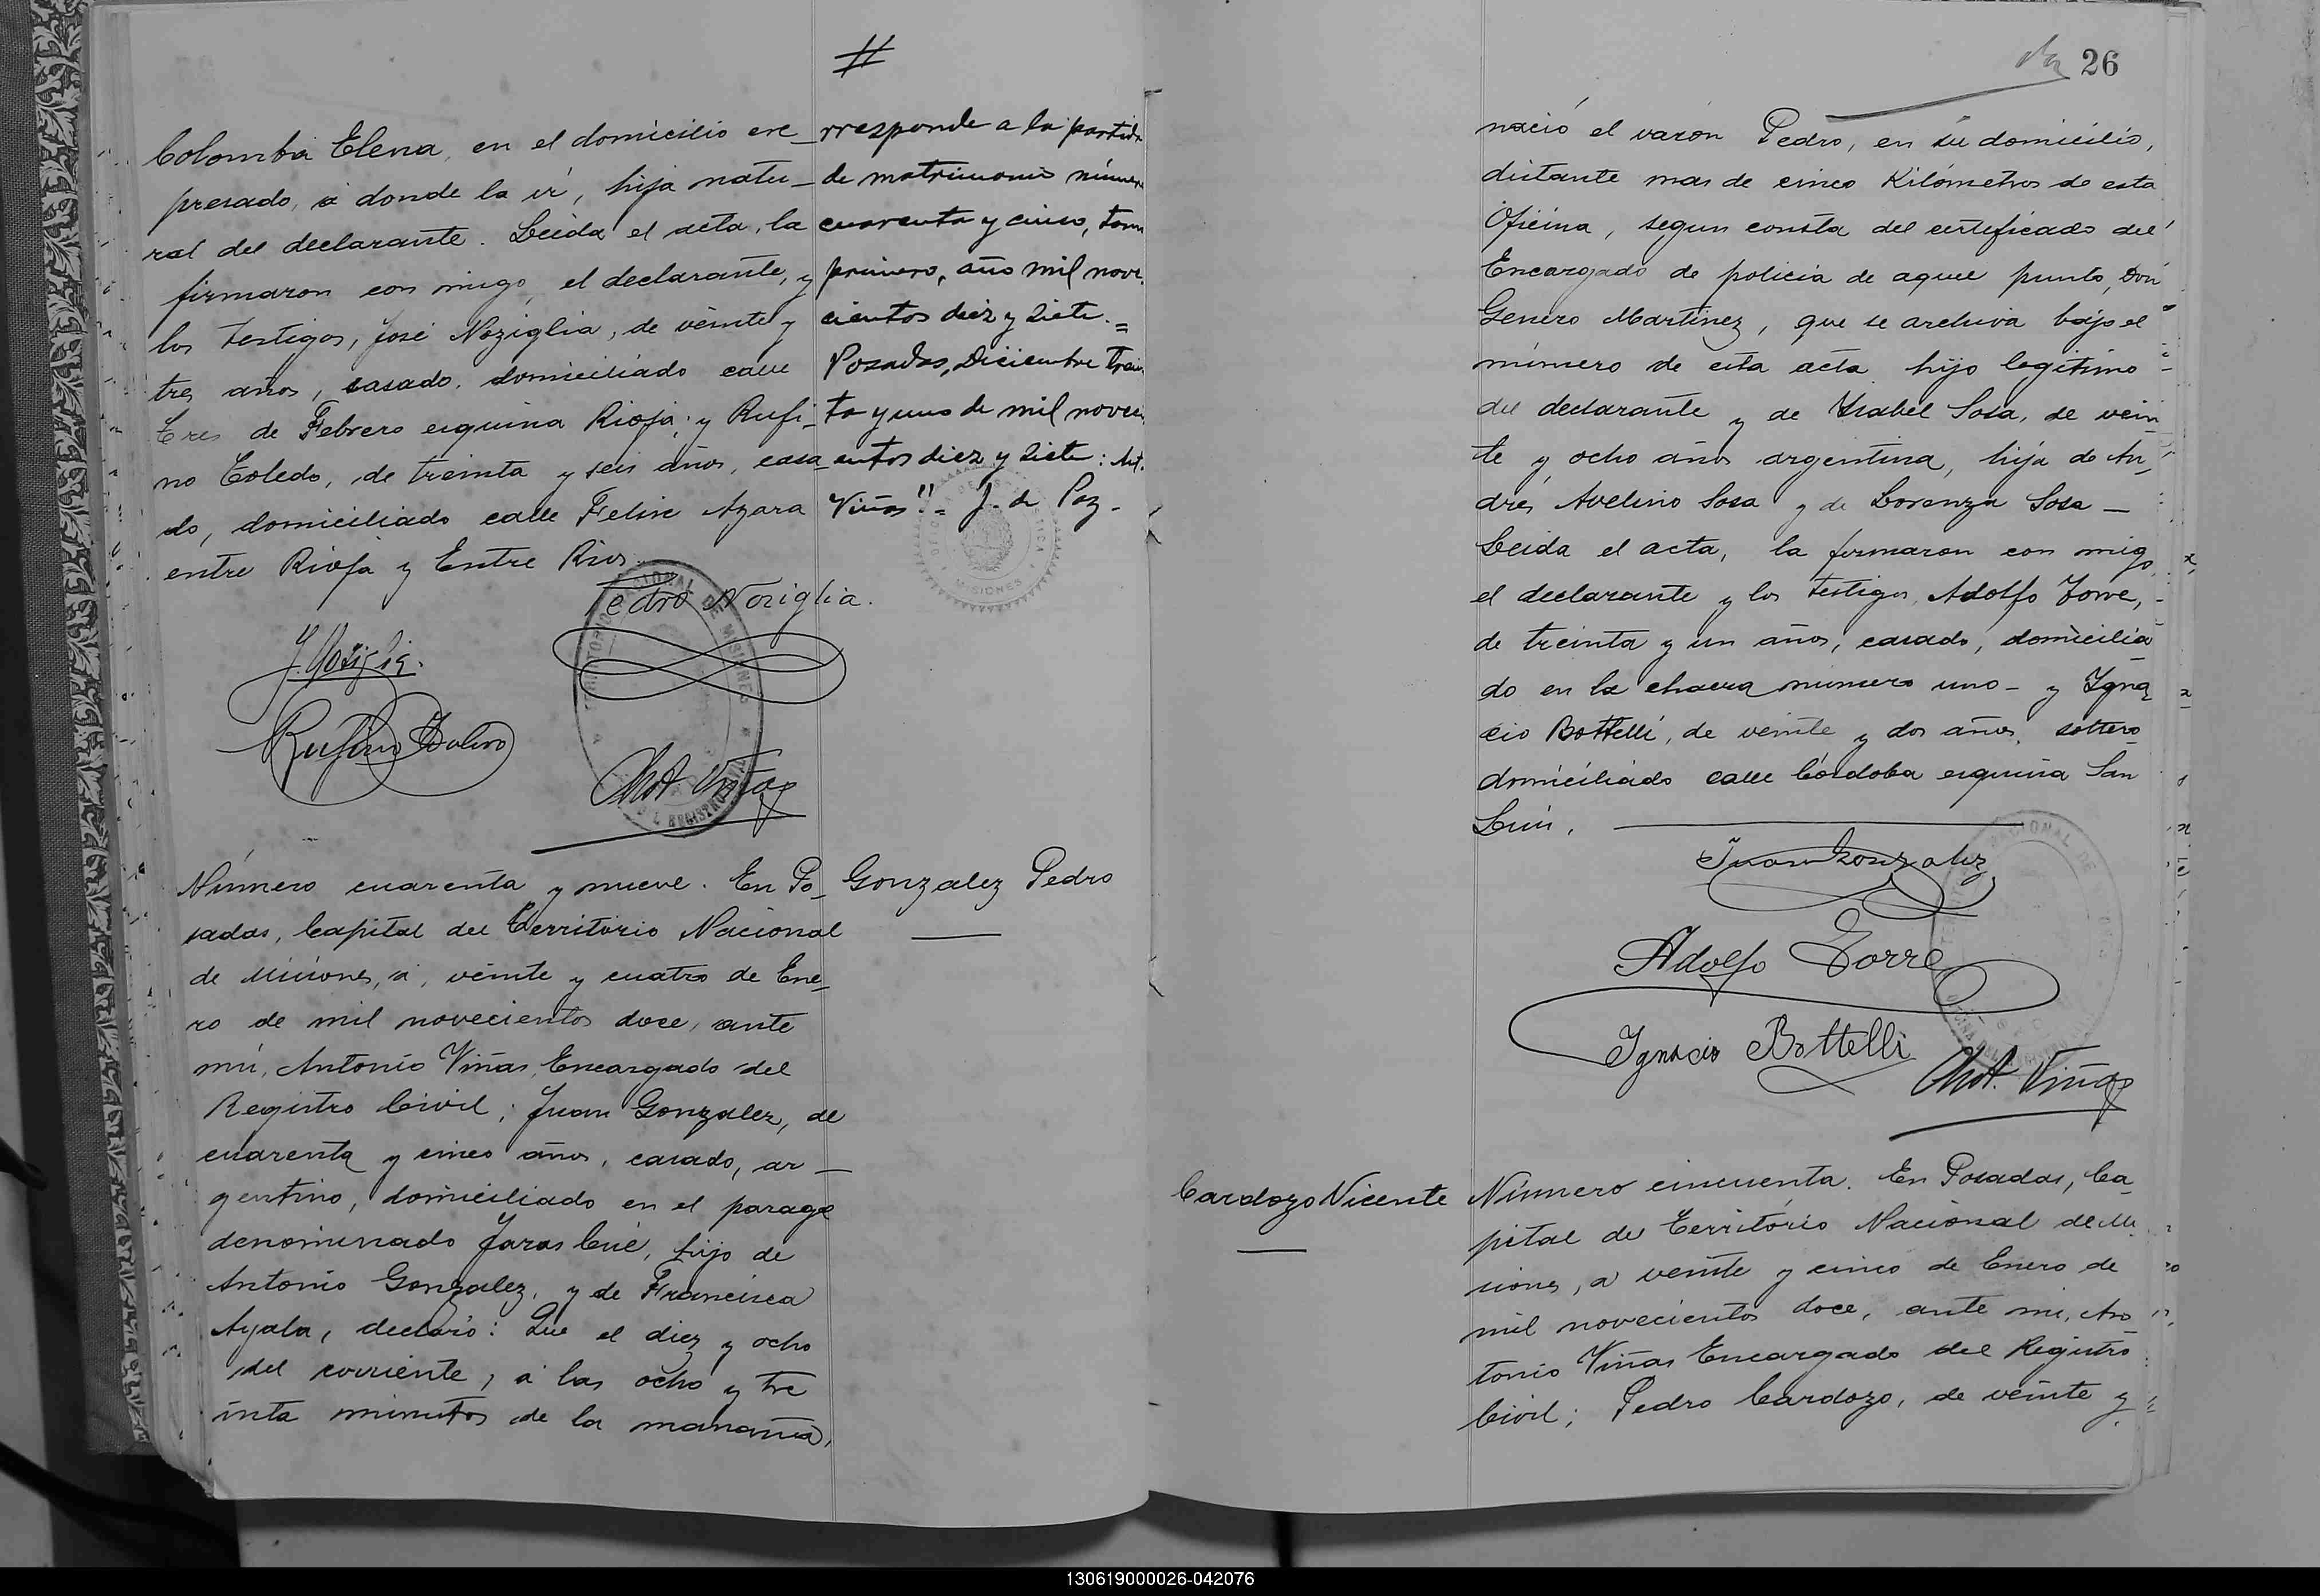 Colomba Elena, en el domicilio ex-
presado, a donde la ví, hija natu-
ral del declarante. Leida el acta, la
firmaron con migo, el declarante, y
los testigos, José Noziglia, de veinte y
tres años, casado, domiciliado calle
Tres de Febrero esquina Rioja; y Rufi-
no Toledo, de treinta y seis años, casa
do, domiciliado calle Felix Azara
entre Rioja y Entre Rios.
#
rresponde a la partida
de matrimonio número
cuarenta y cinco, tomo
primero, año mil nove
cientos diez y siete.=
Posadas, Diciembre trein
ta y uno de mil noveci
entos diez y siete: Ant.
Viñas"- J. de Paz.
Pedro Noziglia.
J. Noziglia.
Rufino Toledo
Ant. Viñas
Número cuarenta y nueve. En Po-
sadas, Capital del Territorio Nacional
de Misiones, á, veinte y cuatro de Ene-
ro de mil novecientos doce, ante
mi, Antonio Viñas, Encargado del
Registro Civil; Juan Gonzalez, de
cuarenta y cinco años, casado, ar-
gentino, domiciliado en el parage
denominado Jaras Cué, hijo de
Antonio Gonzalez, y de Francisca
Ayala, declaró: Que el diez y ocho
del corriente, á las ocho y tre
inta minutos de la mañana,
Gonzalez Pedro
26
nació el varón Pedro, en su domicilio,
distante mas de cinco Kilómetros de esta
Oficina, segun consta del certificado del
Encargado de policia de aquel punto, Don
Genero Martinez, que se archiva bajo el
número de esta acta hijo legítimo
del declarante y de Isabel Sosa, de vein
te y ocho años argentina, hija de An-
drés Avelino Sosa y de Lorenza Sosa -
Leida el acta, la firmaron con migo
el declarante y los testigos, Adolfo Torre,
de treinta y un años, casado, domicilia
do en la chacra número uno - y Igna
cio Bottelli, de veinte y dos años, soltero
domiciliado calle Córdoba esquina San
Luis.
Juan Gonzalez
Adolfo Torre
Ignacio Bottelli
Ant. Viñas
Cardozo Vicente
Número cincuenta. En Posadas, Ca-
pital del Territorio Nacional de Mi
siones, a veinte y cinco de Enero de
mil novecientos doce, ante mi, An
tonio Viñas Encargado del Registro
Civil; Pedro Cardozo, de veinte y
130619000026-042076